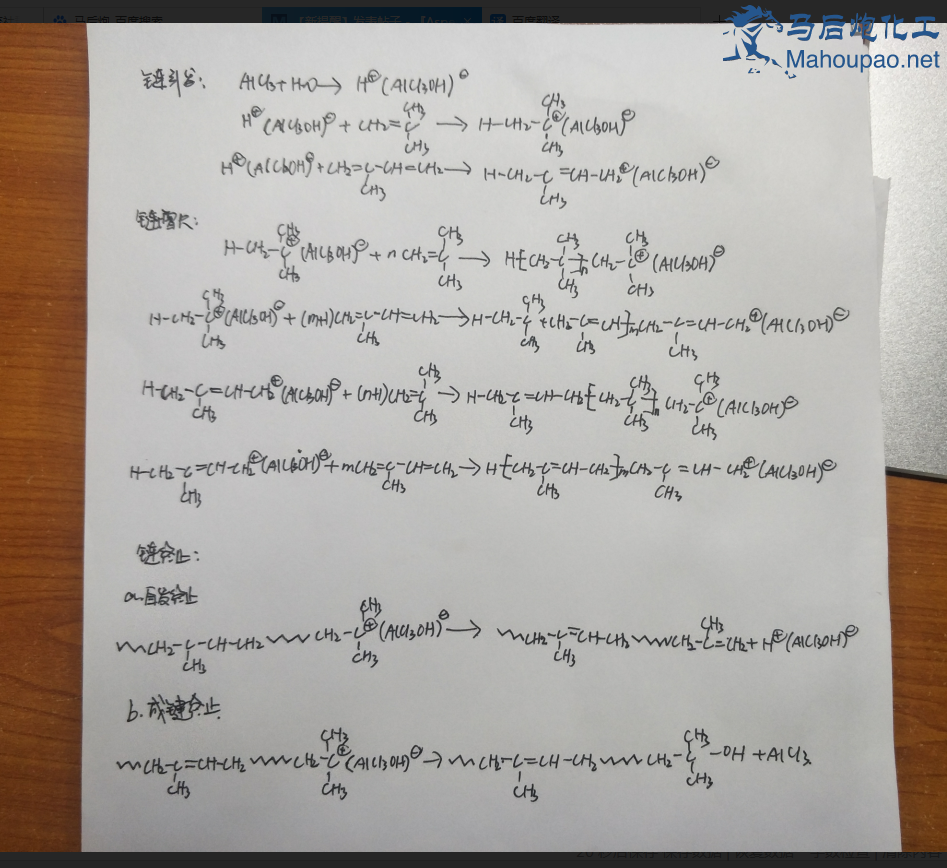 马后炮化工
Mahoupao.net
链引发: AlCl3+H2O → H⊕(AlCl3OH)⊖
H⊕(AlCl3OH)⊖ + CH2=C(CH3)CH3 → H-CH2-C⊕(CH3)(CH3)(AlCl3OH)⊖
H⊕(AlCl3OH)⊖+CH2=C(CH3)-CH=CH2 → H-CH2-C(CH3)=CH-CH2⊕(AlCl3OH)⊖
链增长:
H-CH2-C⊕(CH3)(CH3)(AlCl3OH)⊖ + nCH2=C(CH3)CH3 → H[CH2-C(CH3)(CH3)]nCH2-C⊕(CH3)(CH3)(AlCl3OH)⊖
H-CH2-C⊕(CH3)(CH3)(AlCl3OH)⊖ + (m+1)CH2=C(CH3)-CH=CH2 → H-CH2-C(CH3)(CH3)+CH2-C(CH3)=CH]mCH2-C(CH3)=CH-CH2⊕(AlCl3OH)⊖
H-CH2-C(CH3)=CH-CH2⊕(AlCl3OH)⊖ + (n+1)CH2=C(CH3)CH3 → H-CH2-C(CH3)=CH-CH2[CH2-C(CH3)(CH3)]nCH2-C⊕(CH3)(CH3)(AlCl3OH)⊖
H-CH2-C(CH3)=CH-CH2⊕(AlCl3OH)⊖+mCH2=C(CH3)-CH=CH2 → H[CH2-C(CH3)=CH-CH2]mCH2-C(CH3)=CH-CH2⊕(AlCl3OH)⊖
链终止:
a.自发终止
~CH2-C(CH3)-CH-CH2~CH2-C⊕(CH3)(CH3)(AlCl3OH)⊖ → ~CH2-C(CH3)=CH-CH2~CH2-C(CH3)=CH2+H⊕(AlCl3OH)⊖
b.成键终止
~CH2-C(CH3)=CH-CH2~CH2-C⊕(CH3)(CH3)(AlCl3OH)⊖ → ~CH2-C(CH3)=CH-CH2~CH2-C(CH3)(CH3)-OH +AlCl3